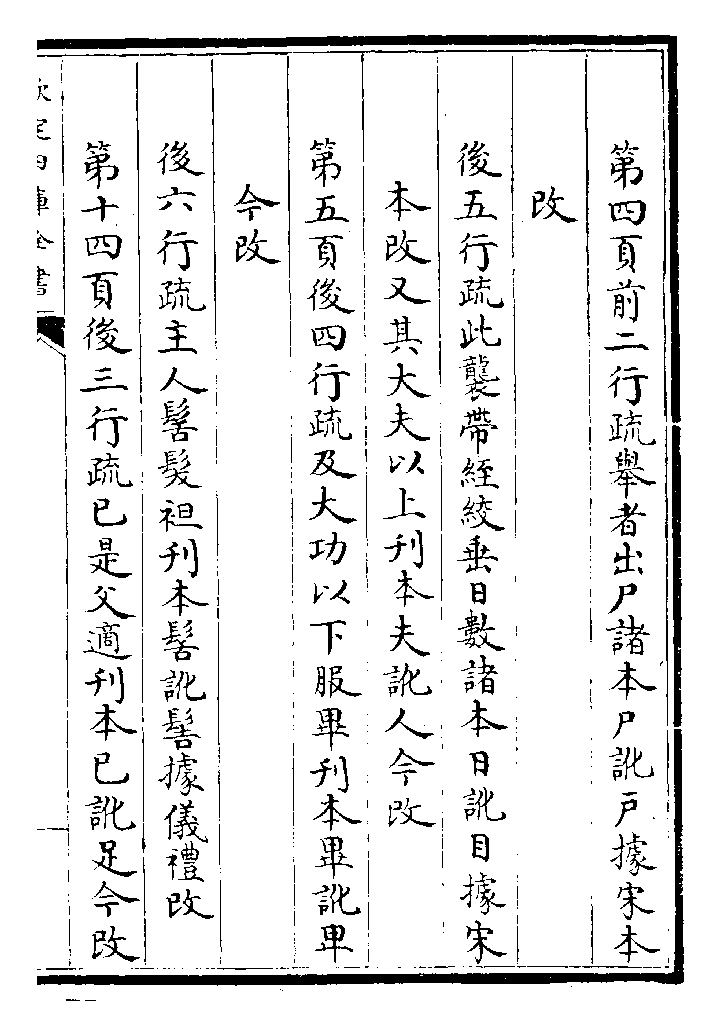 第四頁前二行疏舉者出尸諸本尸訛戸據宋本
改
後五行疏此襲帶絰絞垂日數諸本日訛目據宋
本改又其大夫以上刋本夫訛人今改
第五頁後四行疏及大功以下服畢刋本畢訛卑
今改
後六行疏主人髻髮袒刋本髻訛髺據儀禮改
第十四頁後三行疏已是父適刋本已訛足今改
欽定四庫全書